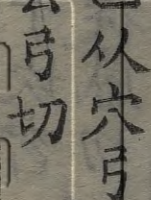 从穴弓
弓切